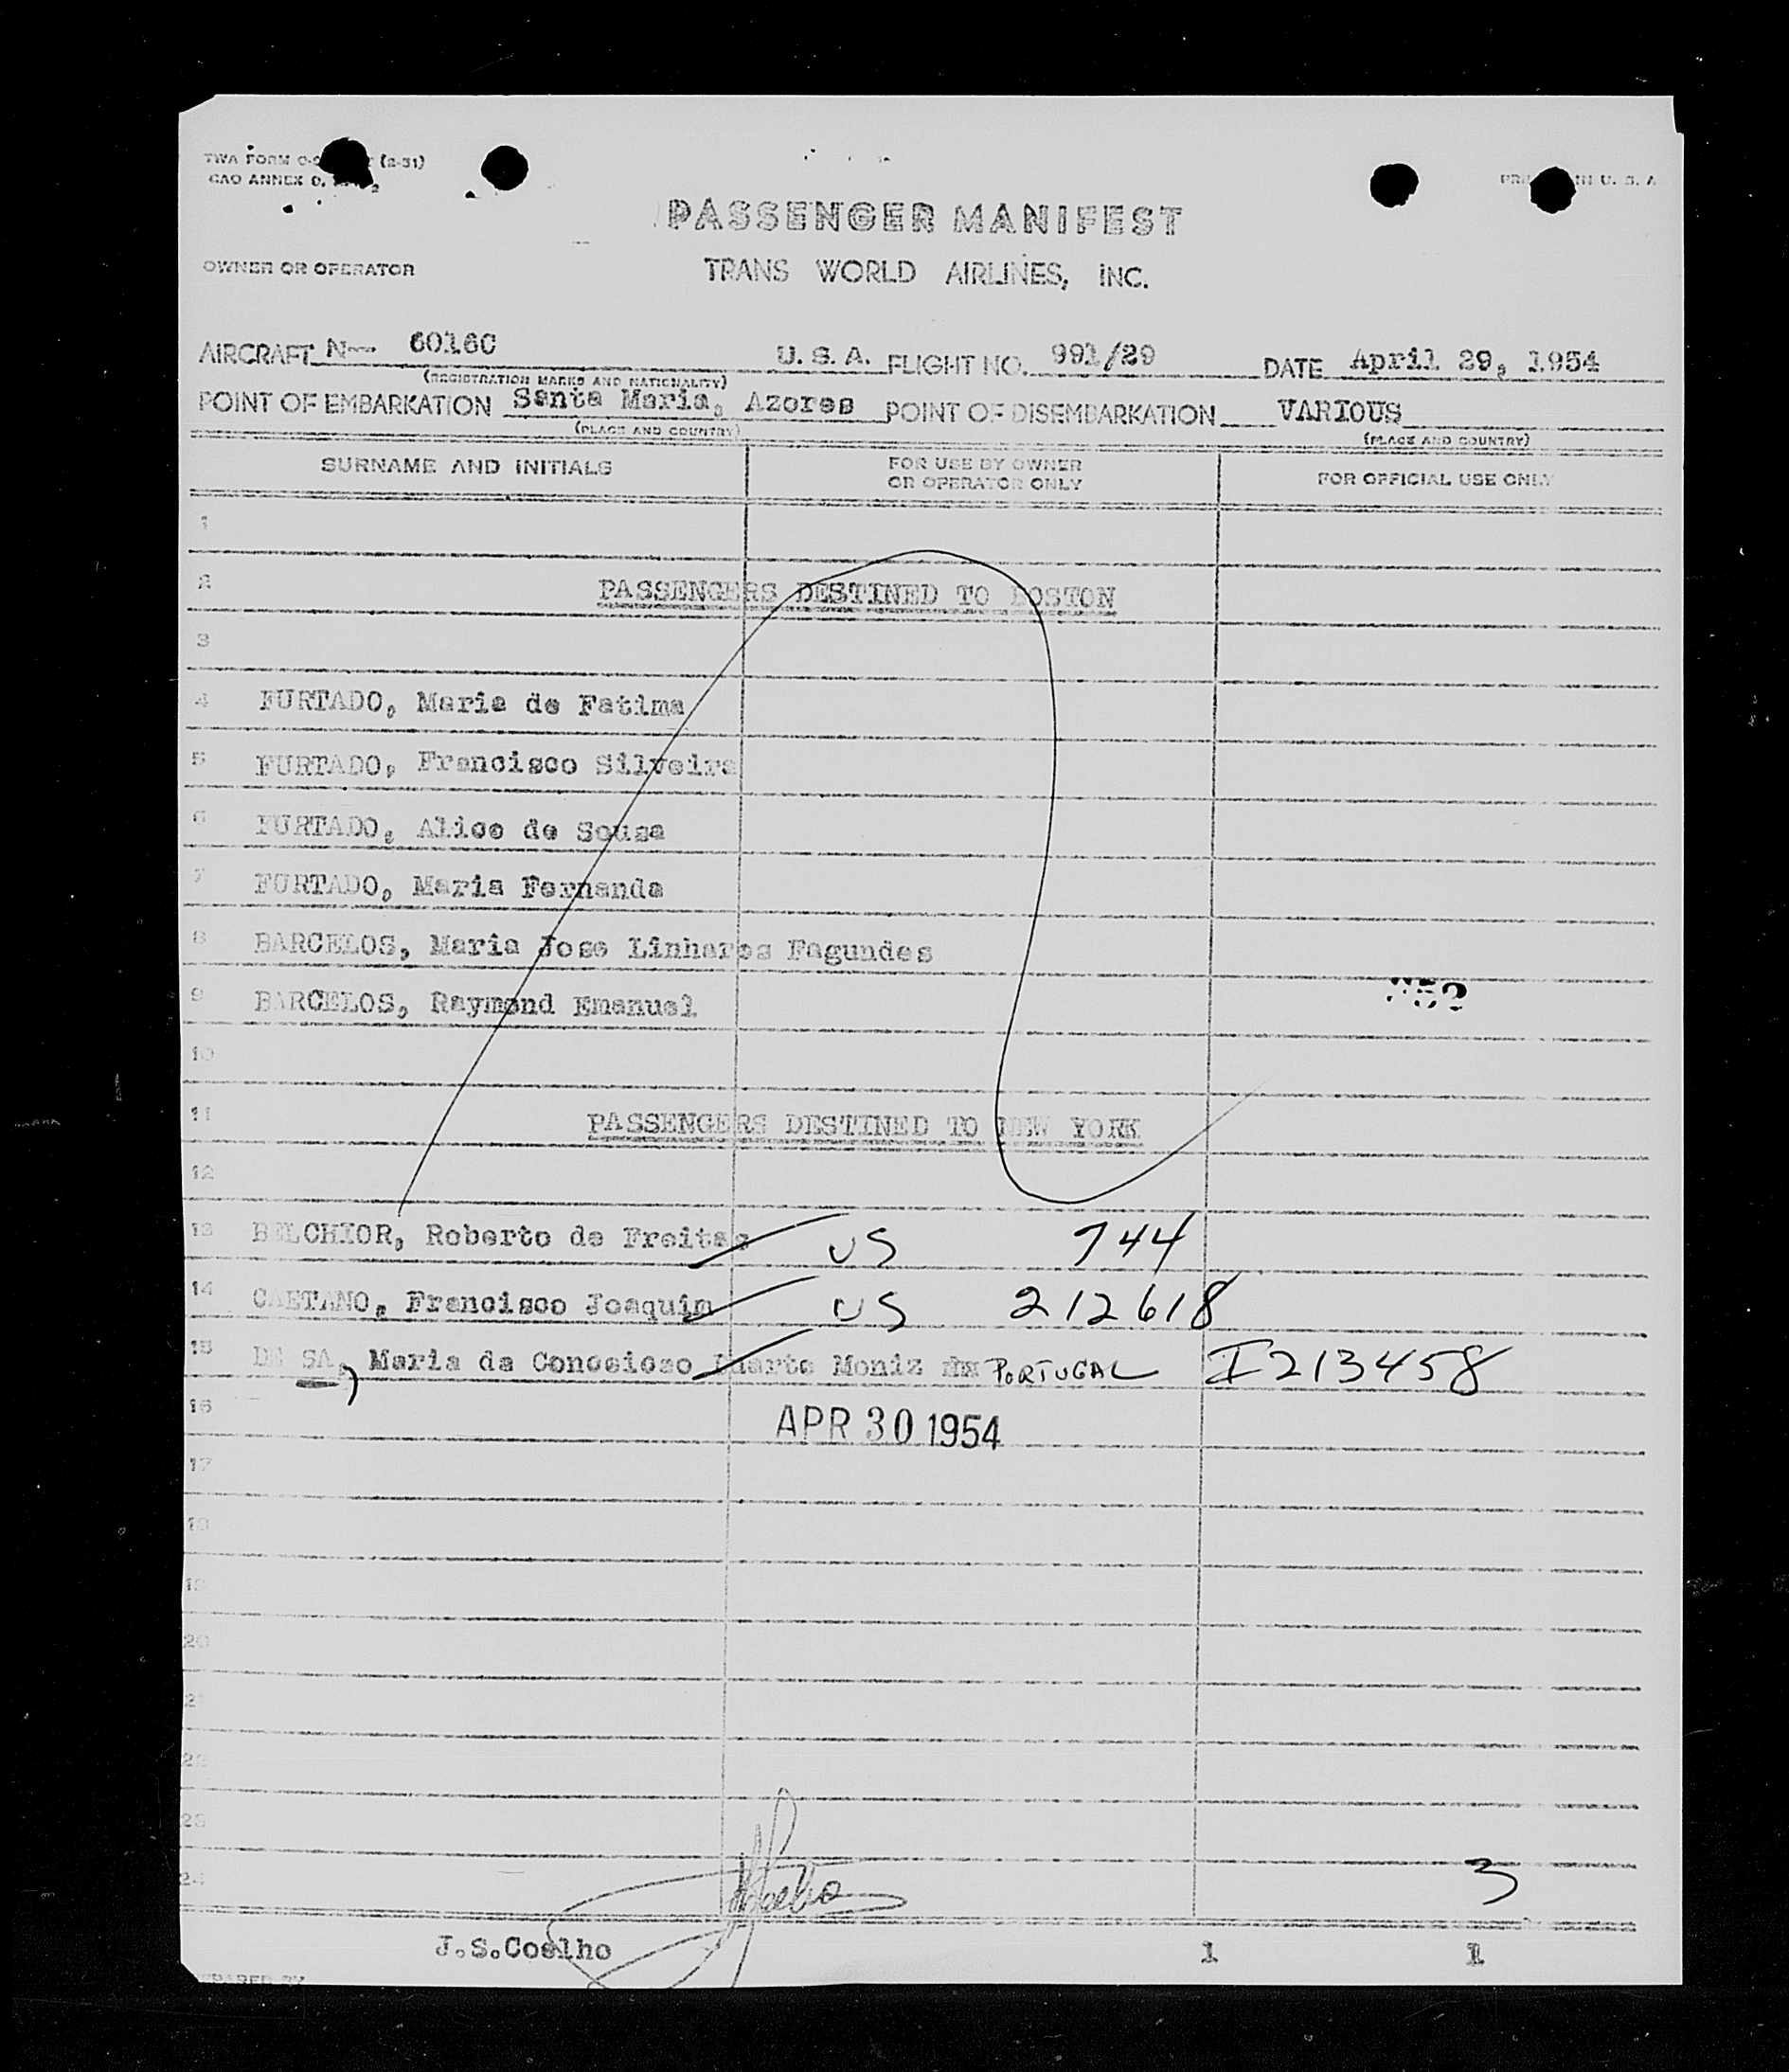 TWA FORM (2-51)
CAO ANNEX 2
PASSENGER MANIFEST
OWNER OR OPERATOR TRANS WORLD AIRLINES, INC.
AIRCRAFT N-- 6016C U. S. A. FLIGHT NO. 991/29 DATE April 29, 1954
(REGISTRATION MARKS AND NATIONALITY)
POINT OF EMBARKATION Santa Maria, Azores POINT OF DISEMBARKATION VARIOUS
(PLACE AND COUNTRY) (PLACE AND COUNTRY)
SURNAME AND INITIALS FOR USE BY OWNER OR OPERATOR ONLY FOR OFFICIAL USE ONLY
1
2 PASSENGERS DESTINED TO BOSTON
3
4 FURTADO, Maria de Fatima
5 FURTADO, Francisco Silveira
6 FURTADO, Alice de Sousa
7 FURTADO, Maria Fernanda
8 BARCELOS, Maria Jose Linhares Fagundes
9 BARCELOS, Raymond Emanuel
10
11 PASSENGERS DESTINED TO NEW YORK
12
13 BELCHIOR, Roberto de Freitas US 744
14 CAETANO, Francisco Joaquim US 212618
15 DE SA, Maria da Conceicao Duarte Moniz PORTUGAL I213458
16 APR 30 1954
17
18
19
20
21
22
23
24 3
J.S.Coelho 1 1